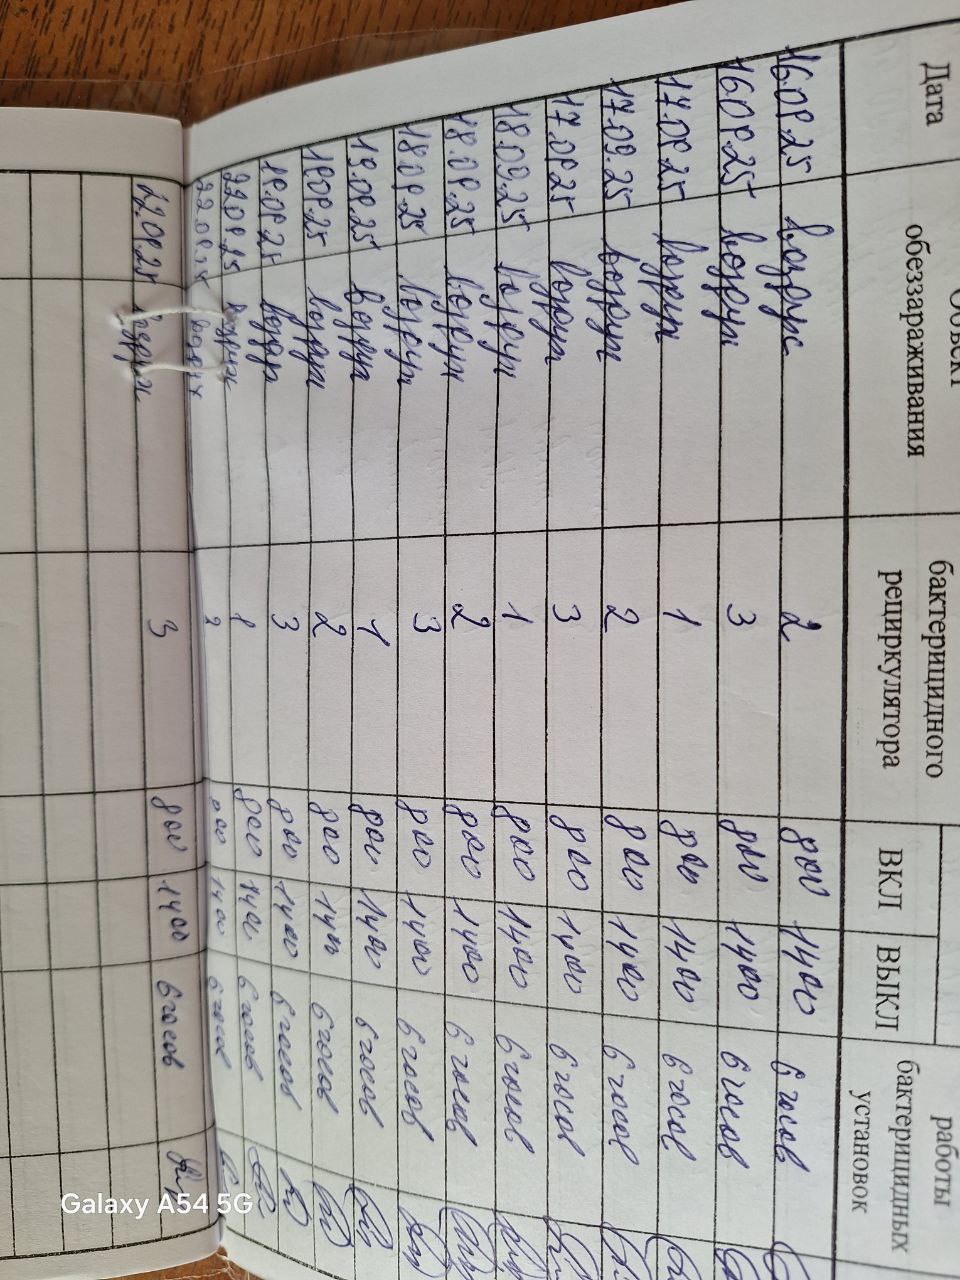 Дата
обеззараживания
бактерицидного
рециркулятора
ВКЛ ВЫКЛ
работы
бактерицидных
установок
16.09.25 воздух 2 800 1400 6 часов
16.09.25 воздух 3 800 1400 6 часов
17.09.25 воздух 1 800 1400 6 часов
17.09.25 воздух 2 800 1400 6 часов
17.09.25 воздух 3 800 1400 6 часов
18.09.25 воздух 1 800 1400 6 часов
18.09.25 воздух 2 800 1400 6 часов
18.09.25 воздух 3 800 1400 6 часов
19.09.25 воздух 1 800 1400 6 часов
19.09.25 воздух 2 800 1400 6 часов
19.09.25 воздух 3 800 1400 6 часов
22.09.25 воздух 1 800 1400 6 часов
22.09.25 воздух 2 800 1400 6 часов
22.09.25 воздух 3 800 1400 6 часов
Galaxy A54 5G